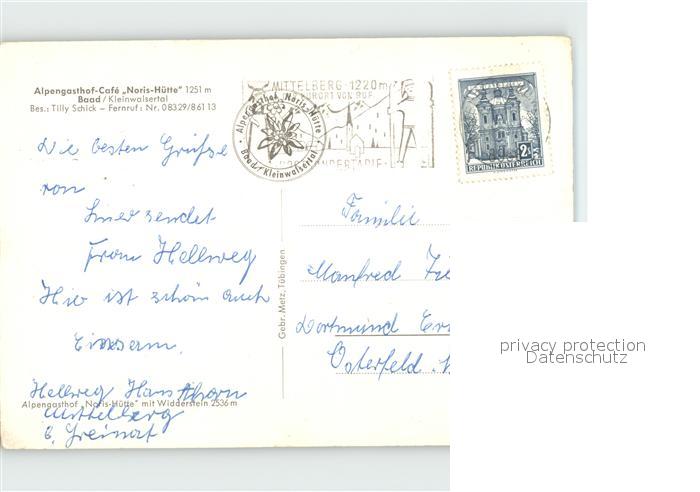 Alpengasthof-Café „Noris-Hütte" 1251 m
Baad / Kleinwalsertal
Bes.: Tilly Schick – Fernruf: Nr. 08329/86113
Alpengasthof „Noris-Hütte"
Baad / Kleinwalsertal
MITTELBERG 1220 m
KURORT VON RUF
2 S
REPUBLIK ÖSTERREICH
Die besten Grüsse
von
sendet
Frau Hellweg
Hier ist schön auch
Einsam.
Hellweg Haus
Mittelberg
Alpengasthof „Noris-Hütte" mit Widderstein 2536 m
Gebr. Metz, Tübingen
Familie
Manfred
Dortmund
Osterfeld
privacy protection
Datenschutz